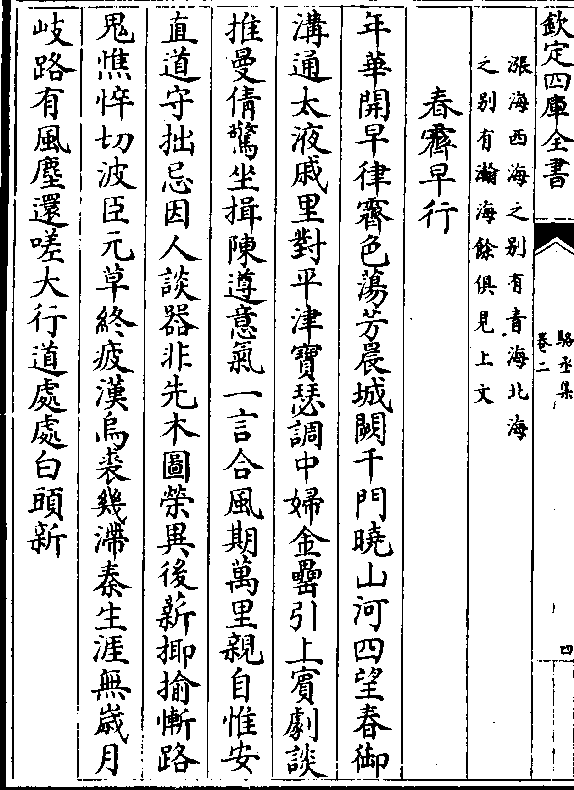 欽定四庫全書
駱丞集
卷二
四
漲海西海之别有青海北海
之别有瀚海餘俱見上文
春霽早行
年華開早律霽色蕩芳晨城闕千門曉山河四望春御
溝通太液戚里對平津寶瑟調中婦金罍引上賓劇談
推曼倩驚坐揖陳遵意氣一言合風期萬里親自惟安
直道守拙忌因人談器非先木圖榮異後薪揶揄慚路
鬼憔悴切波臣元草終疲漢烏裘幾滯秦生涯無歲月
岐路有風塵還嗟大行道處處白頭新